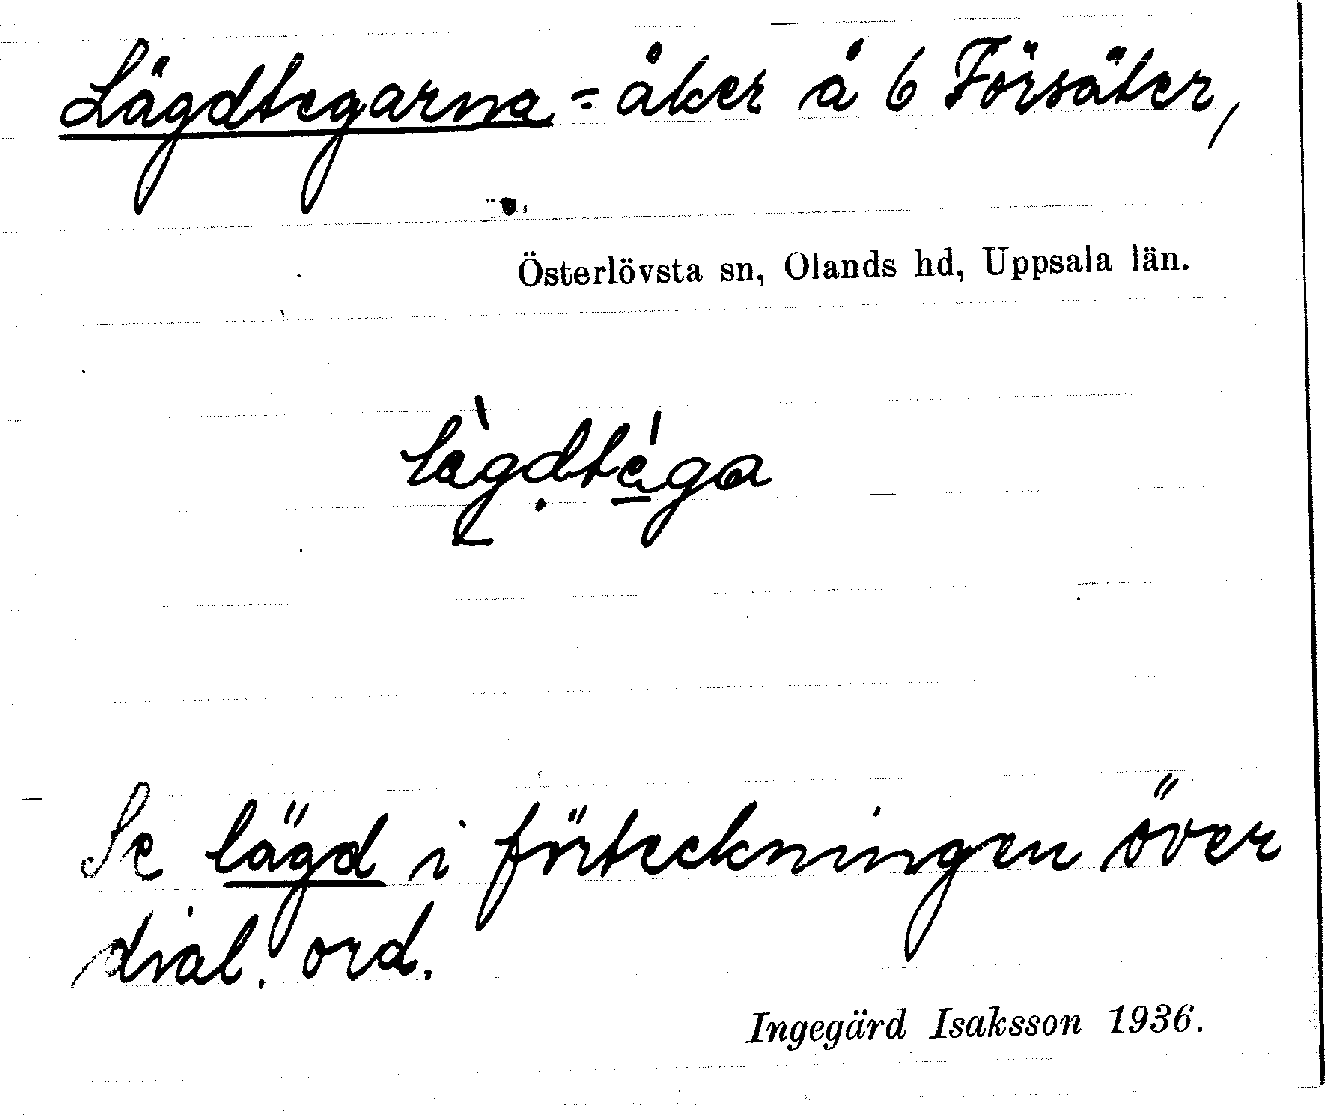 Lägdtegarna = åker å 6 Försäter,
Österlövsta sn, Olands hd, Uppsala län.
lὲgḍtéga
Se lägd i förteckningen över
dial. ord.
Ingegärd Isaksson 1936.